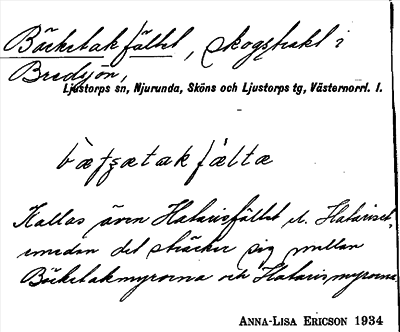 Böcketakfältet, skogstrakt i
Bredsjön,
Ljustorps sn, Njurunda, Sköns och Ljustorps tg, Västernorrl. l.
Kallas även Hatarisfältet el. Hatariset,
emedan det sträcker sig mellan
Böcketakmyrorna och Hatarismyrorna
ANNA-LISA ERICSON 1934